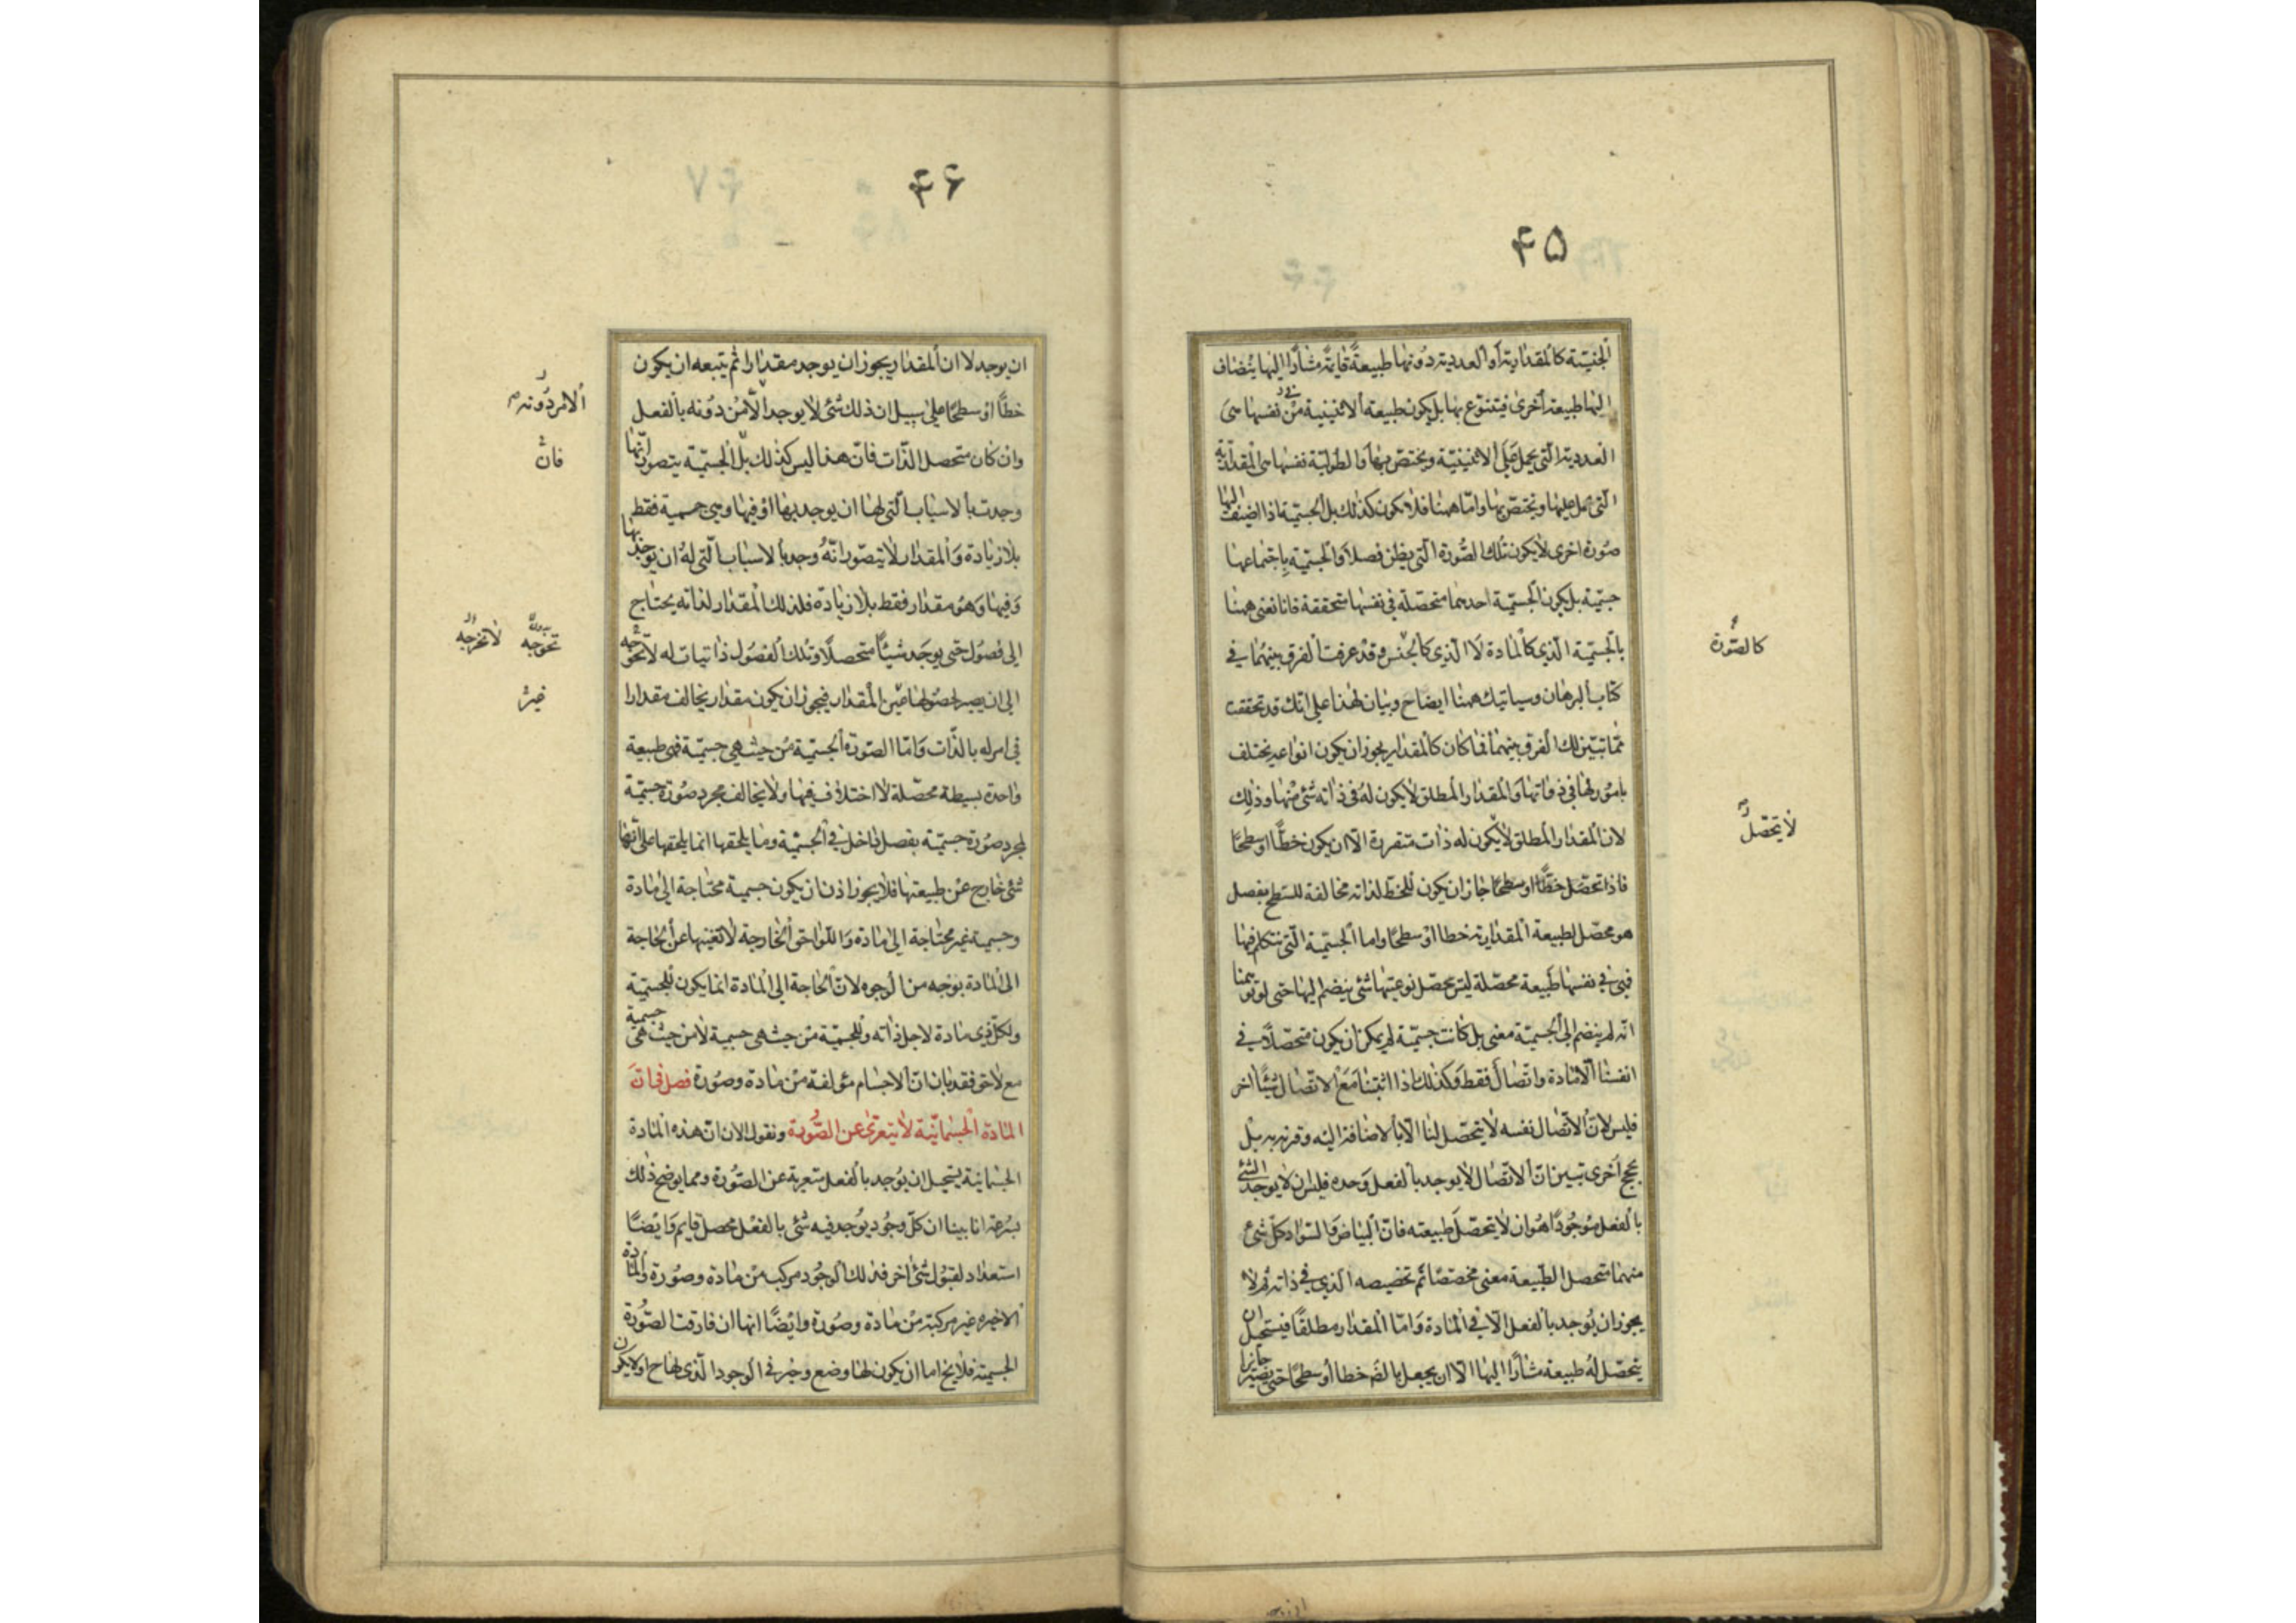 ۴۵
الجنسیة کالمقداریة أو العددیة دونها طبیعةً قایمةً مشاراً الیها یُضاف
الیها طبیعة أخری فیتنوع بها بل یکون طبیعة الاثنینیة نفسها هی
العددیة الّتی یحمل علی الاثنینیّة ویختصّ بها والطولیّة نفسها هی المقداریة
الّتی یحمل علیها ویختصّ بها وامّا هیهنا فلا یکون کذلک بل الجسمیّة اذا اضیف الیها
صُورة اخری لایکون تلک الصُّورة الّتی یظن فصلاً والجسمیّة باجتماعهما
جسمیّة بل یکون الجسمیّة احدیهما متحصّلة فی نفسها متحققة فانا نعنی هیهنا
بالجسمیّة الّذی کالمادة لا الّذی کالجنس وقد عرفت الفرق بینهما فی
کتاب البرهان وسیاتیک هیهنا ایضاح وبیان لهذا علی انّک قد تحققت
ممّا تبیّن لک الفرق بینهما فما کان کالمقدار یجوز ان یکون انواعه یختلف
بامُور لها فی ذواتها والمقدار المطلق لایکون لهُ فی ذاته شئ منها وذلک
لان المقدار المطلق لایکون له ذات متقررة الّا ان یکون خطّاً او سطحًا
فاذا تحصّل خطّاً او سطحًا جاز ان یکون للخطّ لذاته مخالفة للسّطح بفصل
هو محصّل لطبیعة المقداریة خطا او سطحًا واما الجسمیّة الّتی نتکلم فیها
فهی فی نفسها طبیعة محصّلة لیس تحصّل نوعیّتها شئ ینضم الیها حتی لو توهمنا
انّه لم ینضم الی الجسمیّة معنی بل کانت جسمیّة لم یمکن ان یکون متحصّلاً فی
انفسنا الّا مادة واتّصال فقط وکذلک اذا اثبتنا مَعَ الاتّصال شیئًا اخر
فلیس لانّ الاتّصال نفسه لا یتحصّل لنا الّا بالاضافة الیه وقرنه به بل
بحجج اخری تبیین انّ الاتّصال لایوجد بالفعل وحده فلیس ان لا یوجد الشئ
بالفعل موجُودًا هو ان لا یتحصّل طبیعته فانّ البیاض والسّواد کلّ شئ
منهما متحصل الطبیعة معنی مختصّا اتم تخصیصه الّذی فی ذاته ثم لا
یجوز ان یُوجد بالفعل الّا فی المادة وامّا المقدار مطلقًا فیستحیل ان
یتحصّل لهُ طبیعة مشارًا الیها الّا ان یجعل بالضَ خطا أو سطحًا حتی یصیر جایزا
کالصُّورة
لا یتحصّل
۴۶
ان یوجد لا ان المقدار یجوز ان یوجد مقدارا ثم یتبعه ان یکون
خطّا او سطحًا علی سبیل ان ذلک شئ لایوجد الامر دُونه بالفعل
وان کان متحصل الذّات فانّ هذا لیس کذلک بل الجسمیّة یتصور انّها
وجدت بالاسباب الّتی لها ان یوجد بها او فیها وهی جسمیة فقط
بلا زیادة والمقدار لا یتصّور انّهُ وجد بالاسباب الّتی لهُ ان یوجد بها
وفیها وهُو مقدار فقط بلا زیادة فلذلک المقدار لذاته یحتاج
الی فصُول حتی یوجد شیئًا متحصلاً وتلک الفصُول ذاتیات له لا تحوجه
الی ان یصیر لحصُولها غیر المقدار فیجوز ان یکون مقدار یخالف مقدارا
فی امر له بالذّات وَامّا الصّورة الجسمیّة من حیث هی جسمیّة فهی طبیعة
واحدة بسیطة محصّلة لا اختلاف فیها ولا یخالف مجرد صُورة جسمیّة
لمجرد صُورة جسمیّة بفصل داخل فی الجسمیّة وما یلحقها انما یلحقها علی انّها
شئ خارج عن طبیعتها فلا یجوز اذن ان یکون جسمیة محتاجة الی مادة
وجسمیة غیر محتاجة الی مادة وَاللّواحق الخارجة لا تغنیها عن الحاجة
الی المادة بوجه من الوجوه لانّ الحاجة الی المادة انما یکون للجسمیّة
ولکلّ ذی مادة لاجل ذاته وللجسمیّة من حیث هی جسمیة لا من حیث هی جسمیة
مع لاحق فقد بان انّ الاجسام مؤلفة من مادة وصُورة فصل فی انّ
المادة الجسمانیّة لا یتعرّی عن الصُّورة ونقول الان انّ هذه المادة
الجسمانیة یستحیل ان یُوجد بالفعل متعریة عن الصُّورة ومما یوضح ذلک
بسُرعة انا بینا ان کلّ وجُود یُوجد فیه شئ بالفعْل محصل قایم وَایْضًا
استعداد لقبُول شئ اخر فذلک الوجُود مرکب من مادة وصُورة والمادة
الاخیرة غیر مرکبة من مادة وصُورة وایْضًا انها ان فارقت الصّورة
الجسمیة فلا یخ اما ان یکون لها وضع وحیز فی الوجود الّذی لها ح او لا یکون
الامر دُونه
فانّ
تحوجه لا تخرجه
غیر